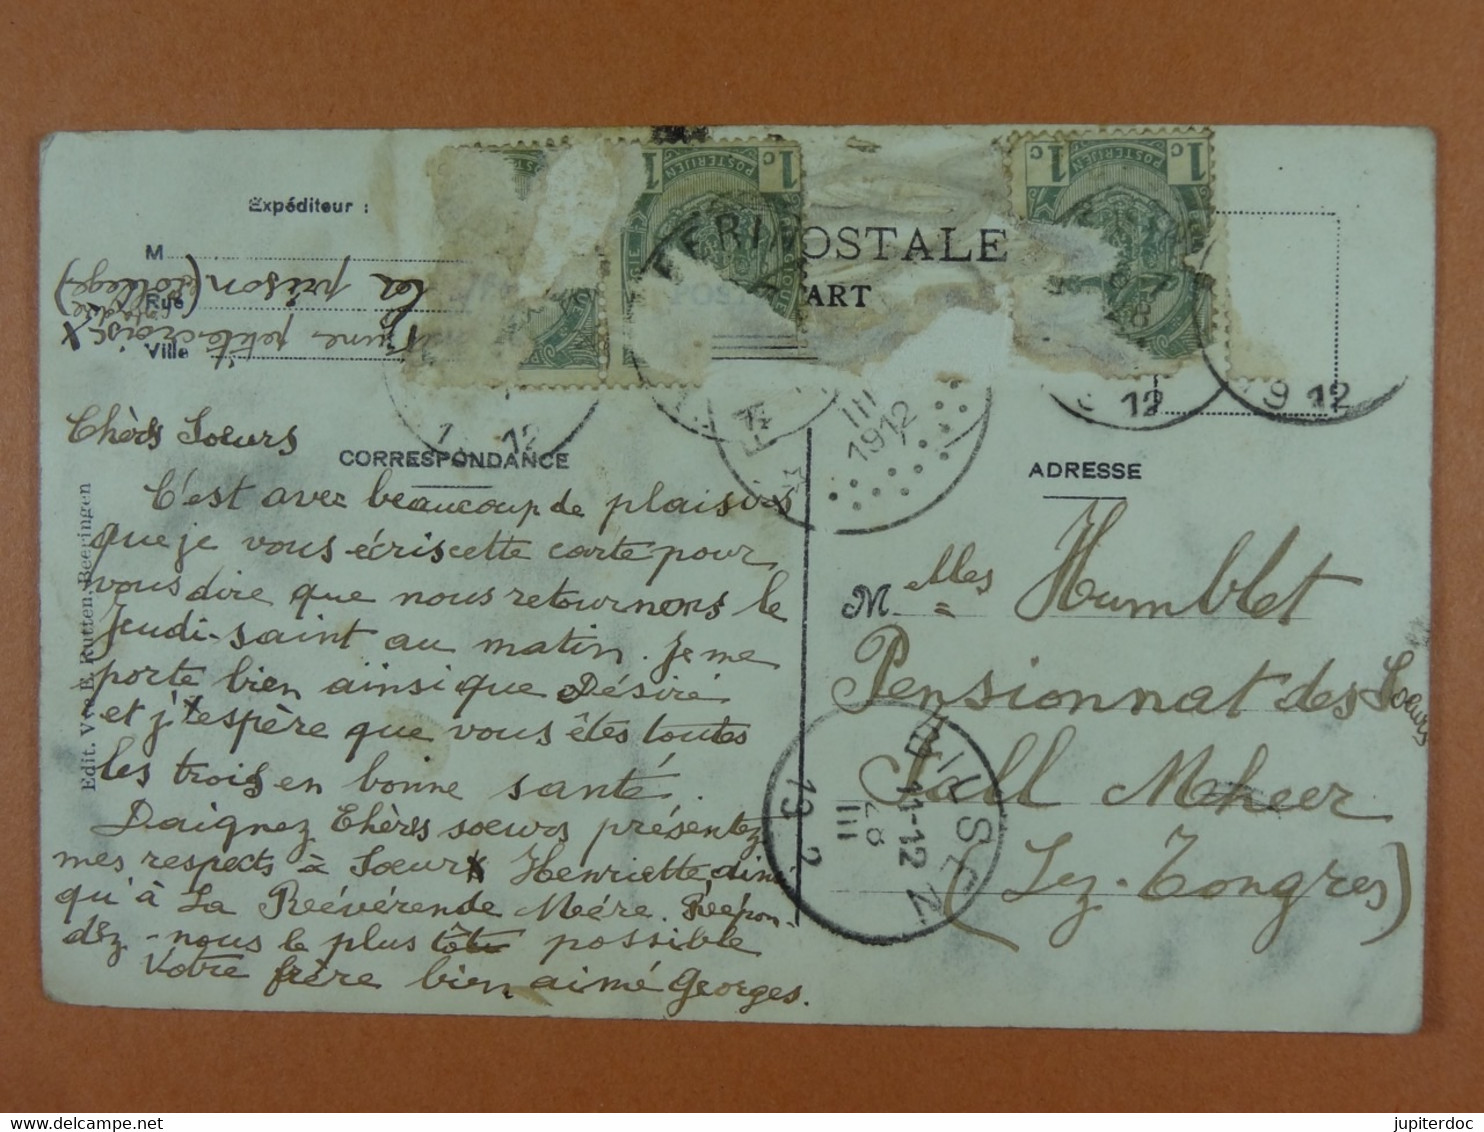 Expéditeur :
M
Rue
Ville
la prison (collège)
une petite croix X
POSTERIJEN
1c 1c
POSTERIJEN
1c 1c
OSTALE
ART
III
1912
12
12
9 12
28
Chèrs Soeurs
CORRESPONDANCE
C'est avec beaucoup de plaisirs
que je vous écris cette carte pour
vous dire que nous retournons le
Jeudi-saint au matin. Je me
porte bien ainsi que Désiré
et j'espère que vous êtes toutes
les trois en bonne santé.
Daignez Chèrs soeurs présentez
mes respects à Soeur Henriette ainsi
qu'à La Réévérende Mère. Réépon-
dez-nous le plus tôt possible
Votre frère bien aimé Georges.
Edit. Vve E. Rutten, Beeringen
ADRESSE
Melles Humblet
Pensionnat des Soeurs
Sall Meheer
(Lez-Tongres)
BILSEN
11-12
28
III
19 2
jupiterdoc